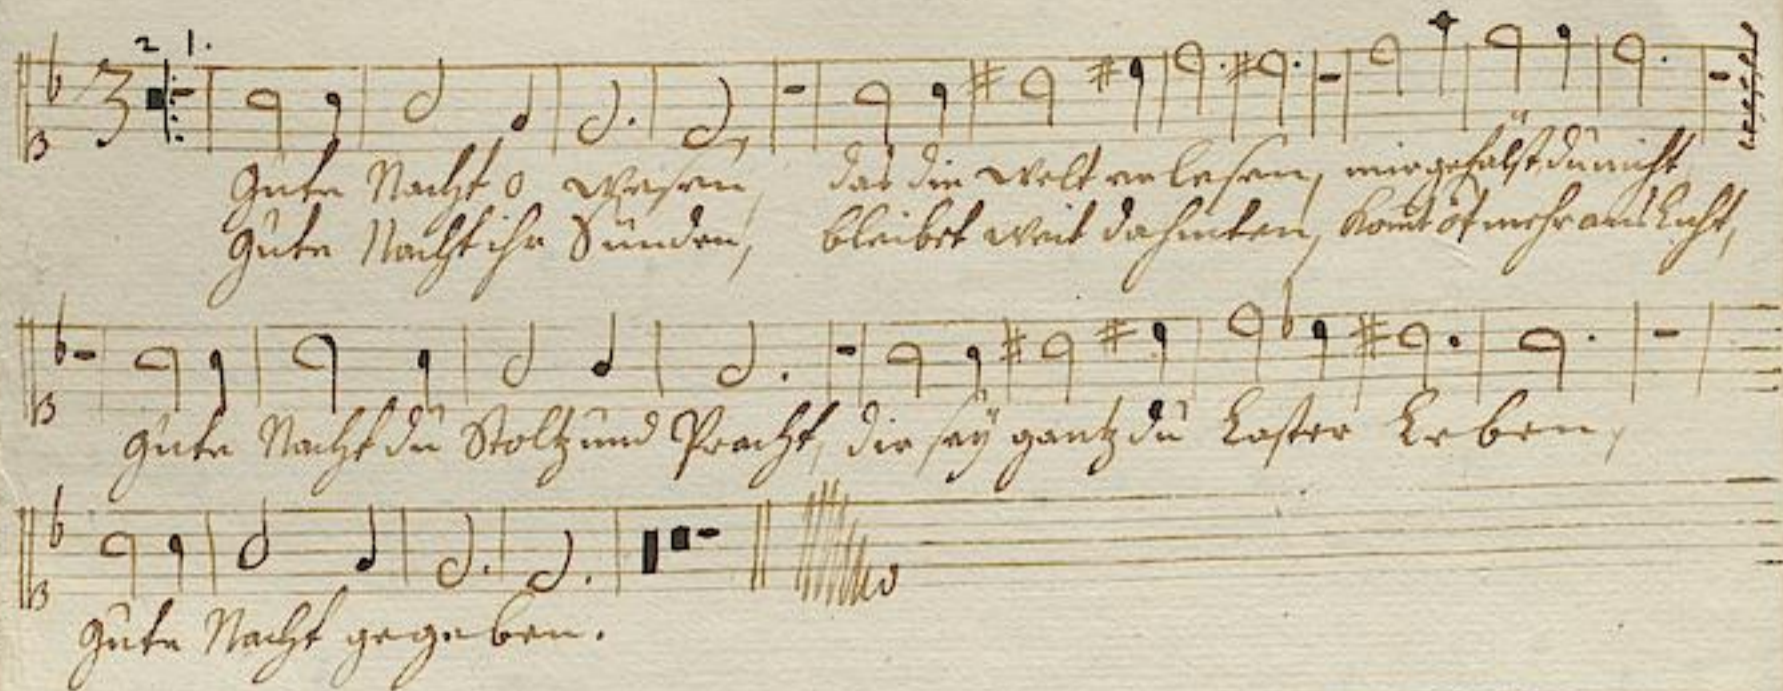 2 1.
Gute Nacht o Wesen,
das die Welt erlesen, mir gefälst du nicht,
Gute Nacht ihr Sünden,
bleibet weit dahinten, komt nicht mehr ans Licht,
gute Nacht du Stoltz und Pracht, dir sey gantz du Laster Leben,
gute Nacht gegeben.